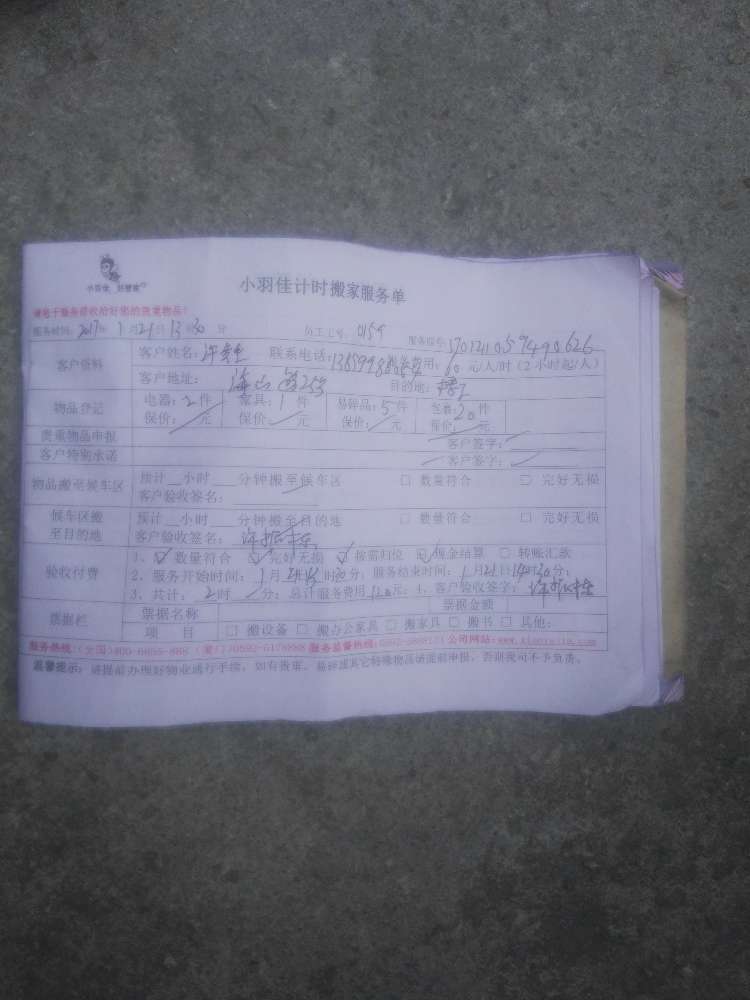 小羽佳 好管家
小羽佳计时搬家服务单
服务时间: 2017年 1月21日13时30分 员工工号: 0159 服务编号:
客户资料 客户姓名: 许 联系电话: 服务费用: 60 元/人/时(2小时起/人)
客户地址: 海 目的地:
物品登记 电器: 2件 家具: 1件 易碎品: 5件 包裹: 20件
保价: 元 保价: 元 保价: 元 保价: 元
贵重物品申报 客户签字:
客户特别承诺 客户签字:
物品搬至候车区 预计__小时____分钟搬至候车区 □ 数量符合 □ 完好无损
客户验收签名:
候车区搬至目的地 预计__小时____分钟搬至目的地 □ 数量符合 □ 完好无损
客户验收签名: 许振
验收付费 1、☑ 数量符合 ☑ 完好无损 ☑ 按需归位 ☑ 现金结算 □ 转账汇款
2、服务开始时间: 1月 日 时30分; 服务结束时间: 1月21日 时30分;
3、共计: 2时 分; 总计服务费用120元; 4、客户验收签字: 许振
票据栏 票据名称 票据金额
项 目 □ 搬设备 □ 搬办公家具 □ 搬家具 □ 搬书 □ 其他:
服务热线:(全国)400-6655-888 (厦门)0592-5178888 服务监督热线: 公司网站:
温馨提示: 请提前办理好物业通行手续, 如有贵重、易碎或其它特殊物品请提前申报, 否则我司不予负责。